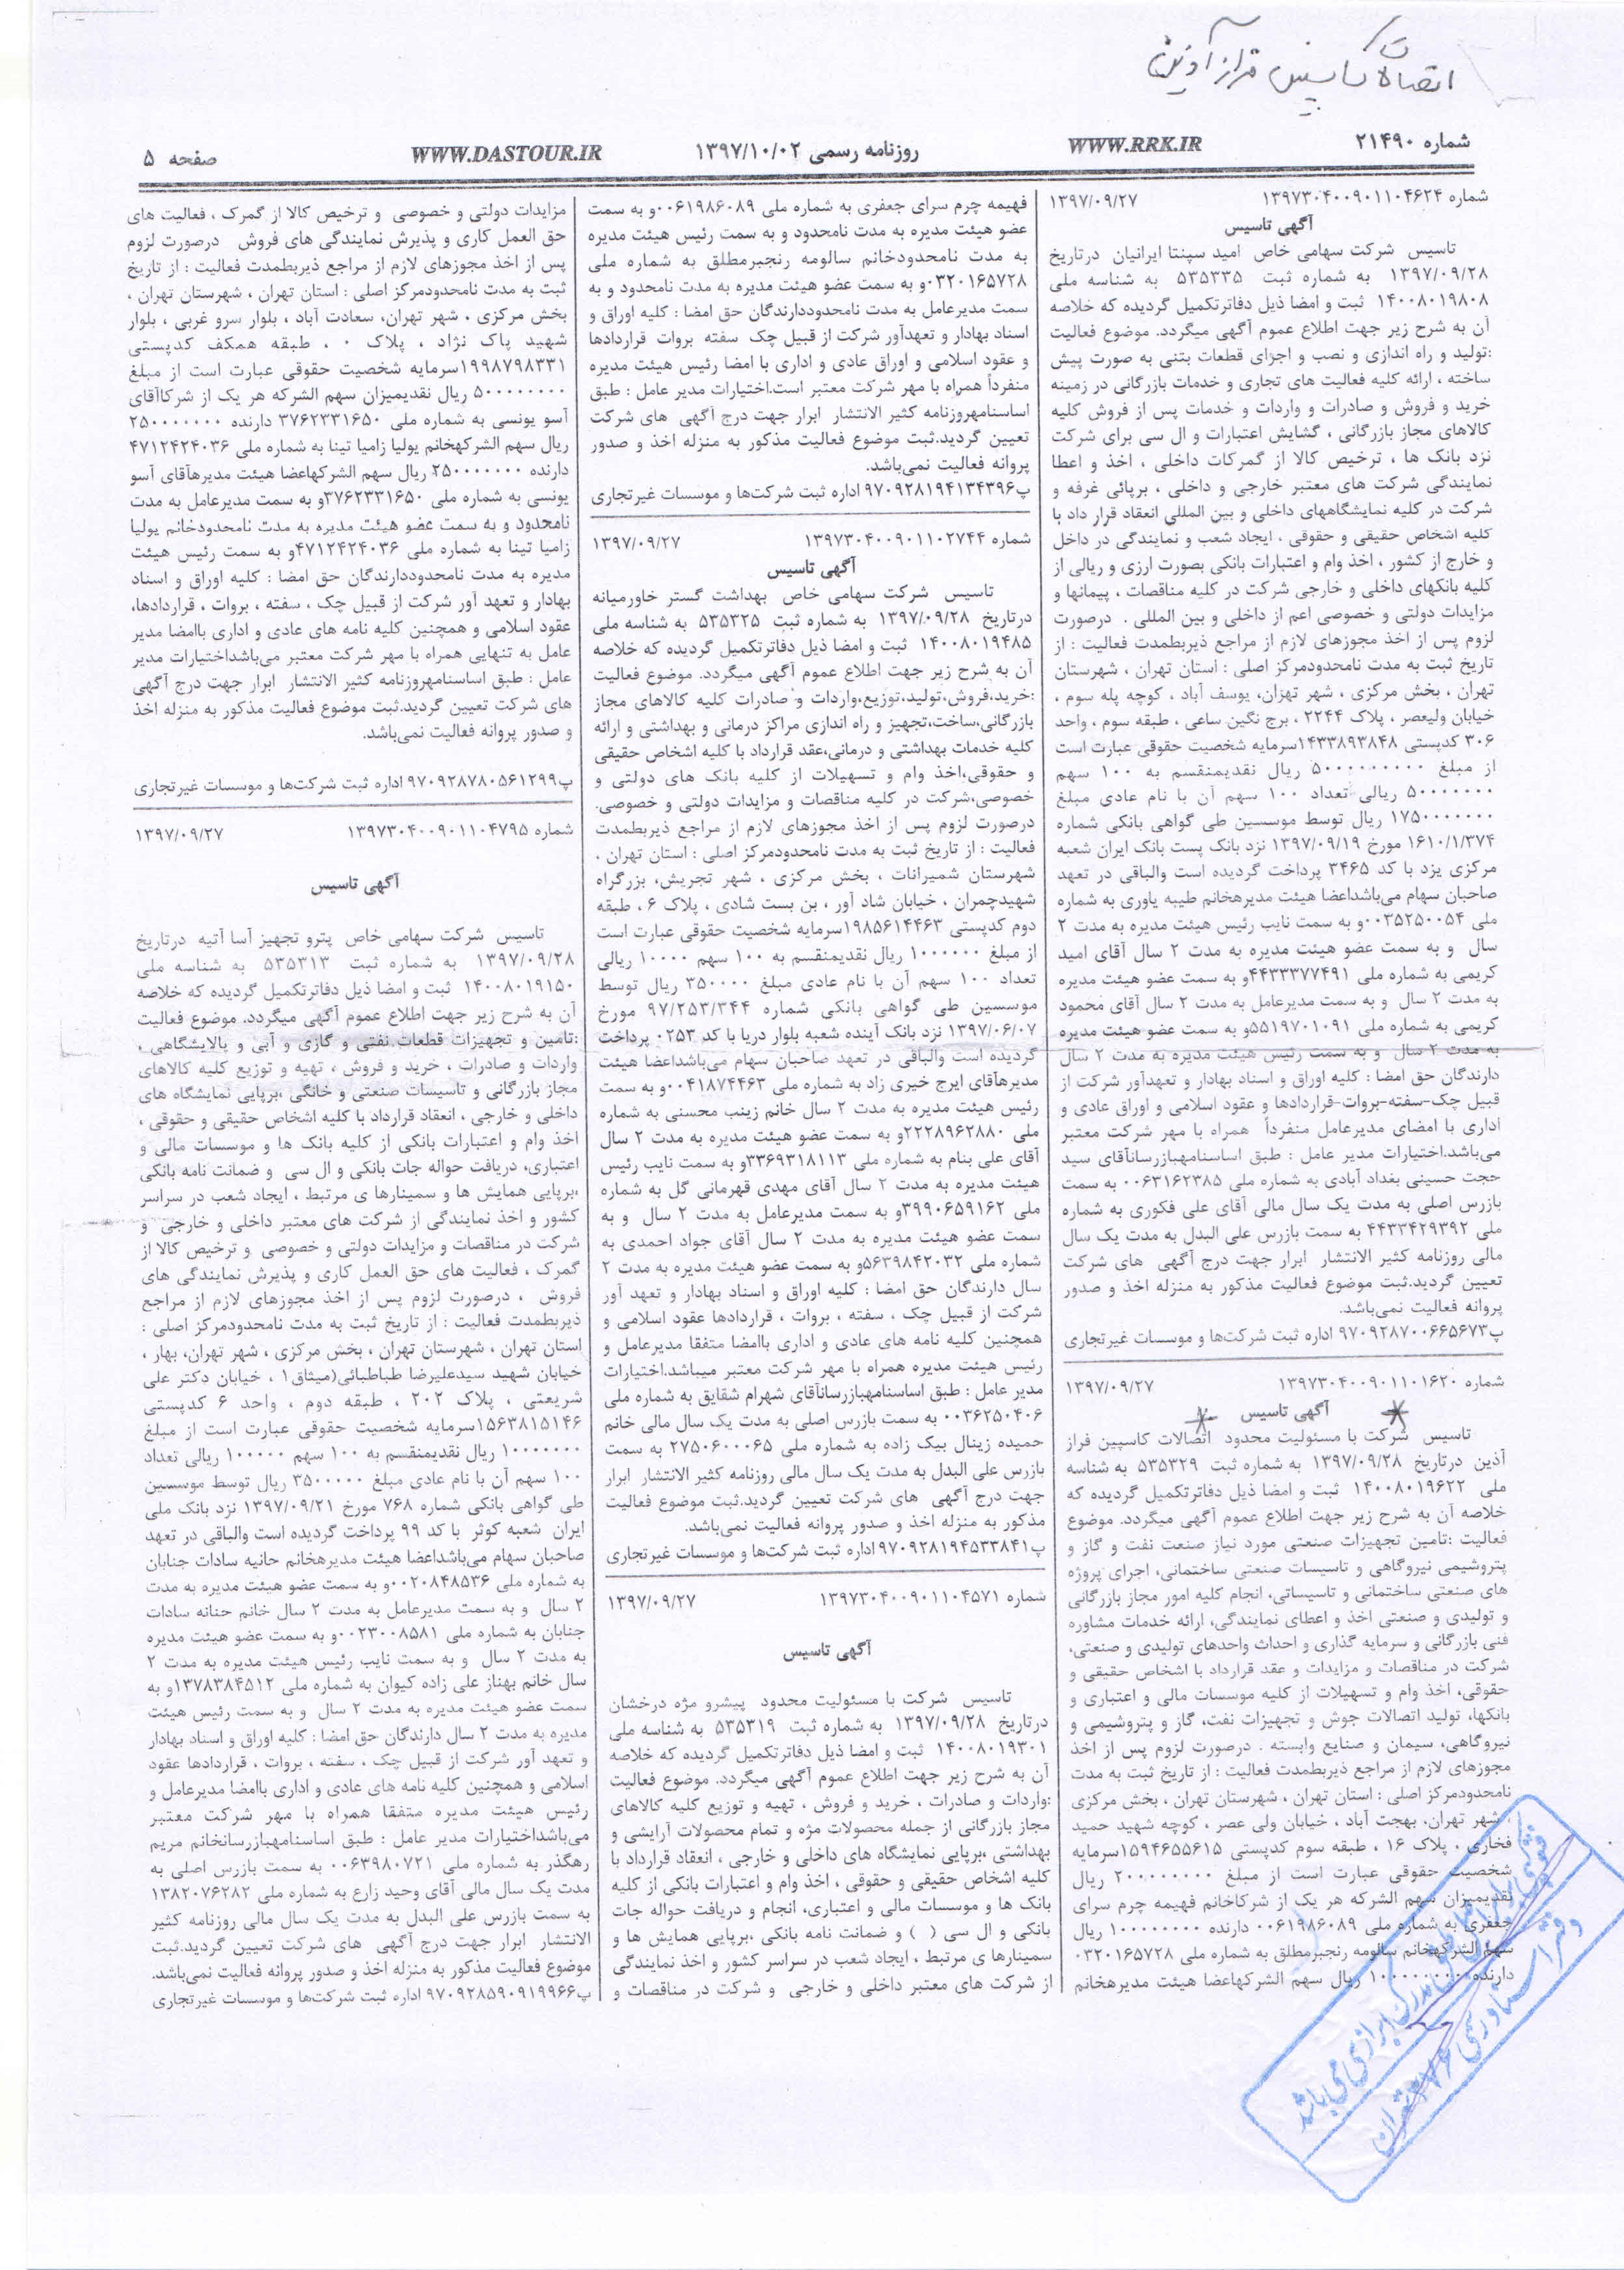 شماره ۲۱۴۹۰
WWW.RRK.IR
روزنامه رسمی ۱۳۹۷/۱۰/۰۲
WWW.DASTOUR.IR
صفحه ۵
شماره ۱۳۹۷۳۰۴۰۰۹۰۱۱۰۴۶۲۴ ۱۳۹۷/۰۹/۲۷
آگهی تاسیس
تاسیس شرکت سهامی خاص امید سپنتا ایرانیان درتاریخ
۱۳۹۷/۰۹/۲۸ به شماره ثبت ۵۳۵۳۳۵ به شناسه ملی
۱۴۰۰۸۰۱۹۸۰۸ ثبت و امضا ذیل دفاترتکمیل گردیده که خلاصه
آن به شرح زیر جهت اطلاع عموم آگهی میگردد. موضوع فعالیت
:تولید و راه اندازی و نصب و اجزای قطعات بتنی به صورت پیش
ساخته ، ارائه کلیه فعالیت های تجاری و خدمات بازرگانی در زمینه
خرید و فروش و صادرات و واردات و خدمات پس از فروش کلیه
کالاهای مجاز بازرگانی ، گشایش اعتبارات و ال سی برای شرکت
نزد بانک ها ، ترخیص کالا از گمرکات داخلی ، اخذ و اعطا
نمایندگی شرکت های معتبر خارجی و داخلی ، برپائی غرفه و
شرکت در کلیه نمایشگاههای داخلی و بین المللی انعقاد قرار داد با
کلیه اشخاص حقیقی و حقوقی ، ایجاد شعب و نمایندگی در داخل
و خارج از کشور ، اخذ وام و اعتبارات بانکی بصورت ارزی و ریالی از
کلیه بانکهای داخلی و خارجی شرکت در کلیه مناقصات ، پیمانها و
مزایدات دولتی و خصوصی اعم از داخلی و بین المللی . درصورت
لزوم پس از اخذ مجوزهای لازم از مراجع ذیربطمدت فعالیت : از
تاریخ ثبت به مدت نامحدودمرکز اصلی : استان تهران ، شهرستان
تهران ، بخش مرکزی ، شهر تهران، یوسف آباد ، کوچه پله سوم ،
خیابان ولیعصر ، پلاک ۲۲۴۴ ، برج نگین ساعی ، طبقه سوم ، واحد
۳۰۶ کدپستی ۱۴۳۳۸۹۳۸۴۸سرمایه شخصیت حقوقی عبارت است
از مبلغ ۵۰۰۰۰۰۰۰۰۰ ریال نقدیمنقسم به ۱۰۰ سهم
۵۰۰۰۰۰۰۰ ریالی تعداد ۱۰۰ سهم آن با نام عادی مبلغ
۱۷۵۰۰۰۰۰۰۰ ریال توسط موسسین طی گواهی بانکی شماره
۱۶۱۰/۱/۳۷۴ مورخ ۱۳۹۷/۰۹/۱۹ نزد بانک پست بانک ایران شعبه
مرکزی یزد با کد ۳۴۶۵ پرداخت گردیده است والباقی در تعهد
صاحبان سهام می‌باشداعضا هیئت مدیرهخانم طیبه یاوری به شماره
ملی ۰۰۳۵۲۵۰۰۵۴و به سمت نایب رئیس هیئت مدیره به مدت ۲
سال و به سمت عضو هیئت مدیره به مدت ۲ سال آقای امید
کریمی به شماره ملی ۴۴۳۳۳۷۷۴۹۱و به سمت عضو هیئت مدیره
به مدت ۲ سال و به سمت مدیرعامل به مدت ۲ سال آقای محمود
کریمی به شماره ملی ۵۵۱۹۷۰۱۰۹۱و به سمت عضو هیئت مدیره
به مدت ۲ سال و به سمت رئیس هیئت مدیره به مدت ۲ سال
دارندگان حق امضا : کلیه اوراق و اسناد بهادار و تعهدآور شرکت از
قبیل چک-سفته-بروات-قراردادها و عقود اسلامی و اوراق عادی و
اداری با امضای مدیرعامل منفرداً همراه با مهر شرکت معتبر
می‌باشد.اختیارات مدیر عامل : طبق اساسنامهبازرسانآقای سید
حجت حسینی بغداد آبادی به شماره ملی ۰۰۶۳۱۶۲۳۸۵ به سمت
بازرس اصلی به مدت یک سال مالی آقای علی فکوری به شماره
ملی ۴۴۳۳۴۲۹۳۹۲ به سمت بازرس علی البدل به مدت یک سال
مالی روزنامه کثیر الانتشار ابرار جهت درج آگهی های شرکت
تعیین گردید.ثبت موضوع فعالیت مذکور به منزله اخذ و صدور
پروانه فعالیت نمی‌باشد.
پ۹۷۰۹۲۸۷۰۰۶۶۵۶۷۳ اداره ثبت شرکت‌ها و موسسات غیرتجاری
شماره ۱۳۹۷۳۰۴۰۰۹۰۱۱۰۱۶۲۰ ۱۳۹۷/۰۹/۲۷
آگهی تاسیس
تاسیس شرکت با مسئولیت محدود اتصالات کاسپین فراز
آذین درتاریخ ۱۳۹۷/۰۹/۲۸ به شماره ثبت ۵۳۵۳۲۹ به شناسه
ملی ۱۴۰۰۸۰۱۹۶۲۲ ثبت و امضا ذیل دفاترتکمیل گردیده که
خلاصه آن به شرح زیر جهت اطلاع عموم آگهی میگردد. موضوع
فعالیت :تامین تجهیزات صنعتی مورد نیاز صنعت نفت و گاز و
پتروشیمی نیروگاهی و تاسیسات صنعتی ساختمانی، اجرای پروژه
های صنعتی ساختمانی و تاسیساتی، انجام کلیه امور مجاز بازرگانی
و تولیدی و صنعتی اخذ و اعطای نمایندگی، ارائه خدمات مشاوره
فنی بازرگانی و سرمایه گذاری و احداث واحدهای تولیدی و صنعتی،
شرکت در مناقصات و مزایدات و عقد قرارداد با اشخاص حقیقی و
حقوقی، اخذ وام و تسهیلات از کلیه موسسات مالی و اعتباری و
بانکها، تولید اتصالات جوش و تجهیزات نفت، گاز و پتروشیمی و
نیروگاهی، سیمان و صنایع وابسته . درصورت لزوم پس از اخذ
مجوزهای لازم از مراجع ذیربطمدت فعالیت : از تاریخ ثبت به مدت
نامحدودمرکز اصلی : استان تهران ، شهرستان تهران ، بخش مرکزی
، شهر تهران، بهجت آباد ، خیابان ولی عصر ، کوچه شهید حمید
فخاری ، پلاک ۱۶ ، طبقه سوم کدپستی ۱۵۹۴۶۵۵۶۱۵سرمایه
شخصیت حقوقی عبارت است از مبلغ ۲۰۰۰۰۰۰۰۰ ریال
نقدیمیزان سهم الشرکه هر یک از شرکاخانم فهیمه چرم سرای
جعفری به شماره ملی ۰۰۶۱۹۸۶۰۸۹ دارنده ۱۰۰۰۰۰۰۰۰ ریال
سهم الشرکهخانم سالومه رنجبرمطلق به شماره ملی ۰۳۲۰۱۶۵۷۲۸
دارنده ۱۰۰۰۰۰۰۰۰ ریال سهم الشرکهاعضا هیئت مدیرهخانم
فهیمه چرم سرای جعفری به شماره ملی ۰۰۶۱۹۸۶۰۸۹و به سمت
عضو هیئت مدیره به مدت نامحدود و به سمت رئیس هیئت مدیره
به مدت نامحدودخانم سالومه رنجبرمطلق به شماره ملی
۰۳۲۰۱۶۵۷۲۸و به سمت عضو هیئت مدیره به مدت نامحدود و به
سمت مدیرعامل به مدت نامحدوددارندگان حق امضا : کلیه اوراق و
اسناد بهادار و تعهدآور شرکت از قبیل چک سفته بروات قراردادها
و عقود اسلامی و اوراق عادی و اداری با امضا رئیس هیئت مدیره
منفرداً همراه با مهر شرکت معتبر است.اختیارات مدیر عامل : طبق
اساسنامهروزنامه کثیر الانتشار ابرار جهت درج آگهی های شرکت
تعیین گردید.ثبت موضوع فعالیت مذکور به منزله اخذ و صدور
پروانه فعالیت نمی‌باشد.
پ۹۷۰۹۲۸۱۹۴۱۳۴۳۹۶ اداره ثبت شرکت‌ها و موسسات غیرتجاری
شماره ۱۳۹۷۳۰۴۰۰۹۰۱۱۰۲۷۴۴ ۱۳۹۷/۰۹/۲۷
آگهی تاسیس
تاسیس شرکت سهامی خاص بهداشت گستر خاورمیانه
درتاریخ ۱۳۹۷/۰۹/۲۸ به شماره ثبت ۵۳۵۳۲۵ به شناسه ملی
۱۴۰۰۸۰۱۹۴۸۵ ثبت و امضا ذیل دفاترتکمیل گردیده که خلاصه
آن به شرح زیر جهت اطلاع عموم آگهی میگردد. موضوع فعالیت
:خرید،فروش،تولید،توزیع،واردات و صادرات کلیه کالاهای مجاز
بازرگانی،ساخت،تجهیز و راه اندازی مراکز درمانی و بهداشتی و ارائه
کلیه خدمات بهداشتی و درمانی،عقد قرارداد با کلیه اشخاص حقیقی
و حقوقی،اخذ وام و تسهیلات از کلیه بانک های دولتی و
خصوصی،شرکت در کلیه مناقصات و مزایدات دولتی و خصوصی.
درصورت لزوم پس از اخذ مجوزهای لازم از مراجع ذیربطمدت
فعالیت : از تاریخ ثبت به مدت نامحدودمرکز اصلی : استان تهران ،
شهرستان شمیرانات ، بخش مرکزی ، شهر تجریش، بزرگراه
شهیدچمران ، خیابان شاد آور ، بن بست شادی ، پلاک ۶ ، طبقه
دوم کدپستی ۱۹۸۵۶۱۴۴۶۳سرمایه شخصیت حقوقی عبارت است
از مبلغ ۱۰۰۰۰۰۰ ریال نقدیمنقسم به ۱۰۰ سهم ۱۰۰۰۰ ریالی
تعداد ۱۰۰ سهم آن با نام عادی مبلغ ۳۵۰۰۰۰ ریال توسط
موسسین طی گواهی بانکی شماره ۹۷/۲۵۳/۳۴۴ مورخ
۱۳۹۷/۰۶/۰۷ نزد بانک آینده شعبه بلوار دریا با کد ۰۲۵۳ پرداخت
گردیده است والباقی در تعهد صاحبان سهام می‌باشداعضا هیئت
مدیرهآقای ایرج خیری زاد به شماره ملی ۰۰۴۱۸۷۴۴۶۳و به سمت
رئیس هیئت مدیره به مدت ۲ سال خانم زینب محسنی به شماره
ملی ۲۲۲۸۹۶۲۸۸۰و به سمت عضو هیئت مدیره به مدت ۲ سال
آقای علی بنام به شماره ملی ۳۳۶۹۳۱۸۱۱۳و به سمت نایب رئیس
هیئت مدیره به مدت ۲ سال آقای مهدی قهرمانی گل به شماره
ملی ۳۹۹۰۶۵۹۱۶۲و به سمت مدیرعامل به مدت ۲ سال و به
سمت عضو هیئت مدیره به مدت ۲ سال آقای جواد احمدی به
شماره ملی ۵۶۳۹۸۴۲۰۳۲و به سمت عضو هیئت مدیره به مدت ۲
سال دارندگان حق امضا : کلیه اوراق و اسناد بهادار و تعهد آور
شرکت از قبیل چک ، سفته ، بروات ، قراردادها عقود اسلامی و
همچنین کلیه نامه های عادی و اداری باامضا متفقا مدیرعامل و
رئیس هیئت مدیره همراه با مهر شرکت معتبر میباشد.اختیارات
مدیر عامل : طبق اساسنامهبازرسانآقای شهرام شقایق به شماره ملی
۰۰۳۶۲۵۰۴۰۶ به سمت بازرس اصلی به مدت یک سال مالی خانم
حمیده زینال بیک زاده به شماره ملی ۲۷۵۰۶۰۰۰۶۵ به سمت
بازرس علی البدل به مدت یک سال مالی روزنامه کثیر الانتشار ابرار
جهت درج آگهی های شرکت تعیین گردید.ثبت موضوع فعالیت
مذکور به منزله اخذ و صدور پروانه فعالیت نمی‌باشد.
پ۹۷۰۹۲۸۱۹۴۵۳۳۸۴۱ اداره ثبت شرکت‌ها و موسسات غیرتجاری
شماره ۱۳۹۷۳۰۴۰۰۹۰۱۱۰۴۵۷۱ ۱۳۹۷/۰۹/۲۷
آگهی تاسیس
تاسیس شرکت با مسئولیت محدود پیشرو مژه درخشان
درتاریخ ۱۳۹۷/۰۹/۲۸ به شماره ثبت ۵۳۵۳۱۹ به شناسه ملی
۱۴۰۰۸۰۱۹۳۰۱ ثبت و امضا ذیل دفاترتکمیل گردیده که خلاصه
آن به شرح زیر جهت اطلاع عموم آگهی میگردد. موضوع فعالیت
:واردات و صادرات ، خرید و فروش ، تهیه و توزیع کلیه کالاهای
مجاز بازرگانی از جمله محصولات مژه و تمام محصولات آرایشی و
بهداشتی ،برپایی نمایشگاه های داخلی و خارجی ، انعقاد قرارداد با
کلیه اشخاص حقیقی و حقوقی ، اخذ وام و اعتبارات بانکی از کلیه
بانک ها و موسسات مالی و اعتباری، انجام و دریافت حواله جات
بانکی و ال سی ( ) و ضمانت نامه بانکی ،برپایی همایش ها و
سمینارها ی مرتبط ، ایجاد شعب در سراسر کشور و اخذ نمایندگی
از شرکت های معتبر داخلی و خارجی و شرکت در مناقصات و
مزایدات دولتی و خصوصی و ترخیص کالا از گمرک ، فعالیت های
حق العمل کاری و پذیرش نمایندگی های فروش درصورت لزوم
پس از اخذ مجوزهای لازم از مراجع ذیربطمدت فعالیت : از تاریخ
ثبت به مدت نامحدودمرکز اصلی : استان تهران ، شهرستان تهران ،
بخش مرکزی ، شهر تهران، سعادت آباد ، بلوار سرو غربی ، بلوار
شهید پاک نژاد ، پلاک ۰ ، طبقه همکف کدپستی
۱۹۹۸۷۹۸۳۳۱سرمایه شخصیت حقوقی عبارت است از مبلغ
۵۰۰۰۰۰۰۰۰ ریال نقدیمیزان سهم الشرکه هر یک از شرکاآقای
آسو یونسی به شماره ملی ۳۷۶۲۳۳۱۶۵۰ دارنده ۲۵۰۰۰۰۰۰۰
ریال سهم الشرکهخانم یولیا زامیا تینا به شماره ملی ۴۷۱۲۴۲۴۰۳۶
دارنده ۲۵۰۰۰۰۰۰۰ ریال سهم الشرکهاعضا هیئت مدیرهآقای آسو
یونسی به شماره ملی ۳۷۶۲۳۳۱۶۵۰و به سمت مدیرعامل به مدت
نامحدود و به سمت عضو هیئت مدیره به مدت نامحدودخانم یولیا
زامیا تینا به شماره ملی ۴۷۱۲۴۲۴۰۳۶و به سمت رئیس هیئت
مدیره به مدت نامحدوددارندگان حق امضا : کلیه اوراق و اسناد
بهادار و تعهد آور شرکت از قبیل چک ، سفته ، بروات ، قراردادها،
عقود اسلامی و همچنین کلیه نامه های عادی و اداری باامضا مدیر
عامل به تنهایی همراه با مهر شرکت معتبر می‌باشداختیارات مدیر
عامل : طبق اساسنامهروزنامه کثیر الانتشار ابرار جهت درج آگهی
های شرکت تعیین گردید.ثبت موضوع فعالیت مذکور به منزله اخذ
و صدور پروانه فعالیت نمی‌باشد.
پ۹۷۰۹۲۸۷۸۰۵۶۱۲۹۹ اداره ثبت شرکت‌ها و موسسات غیرتجاری
شماره ۱۳۹۷۳۰۴۰۰۹۰۱۱۰۴۷۹۵ ۱۳۹۷/۰۹/۲۷
آگهی تاسیس
تاسیس شرکت سهامی خاص پترو تجهیز آسا آتیه درتاریخ
۱۳۹۷/۰۹/۲۸ به شماره ثبت ۵۳۵۳۱۳ به شناسه ملی
۱۴۰۰۸۰۱۹۱۵۰ ثبت و امضا ذیل دفاترتکمیل گردیده که خلاصه
آن به شرح زیر جهت اطلاع عموم آگهی میگردد. موضوع فعالیت
:تامین و تجهیزات قطعات نفتی و گازی و آبی و پالایشگاهی ،
واردات و صادرات ، خرید و فروش ، تهیه و توزیع کلیه کالاهای
مجاز بازرگانی و تاسیسات صنعتی و خانگی ،برپایی نمایشگاه های
داخلی و خارجی ، انعقاد قرارداد با کلیه اشخاص حقیقی و حقوقی ،
اخذ وام و اعتبارات بانکی از کلیه بانک ها و موسسات مالی و
اعتباری، دریافت حواله جات بانکی و ال سی و ضمانت نامه بانکی
،برپایی همایش ها و سمینارها ی مرتبط ، ایجاد شعب در سراسر
کشور و اخذ نمایندگی از شرکت های معتبر داخلی و خارجی و
شرکت در مناقصات و مزایدات دولتی و خصوصی و ترخیص کالا از
گمرک ، فعالیت های حق العمل کاری و پذیرش نمایندگی های
فروش ، درصورت لزوم پس از اخذ مجوزهای لازم از مراجع
ذیربطمدت فعالیت : از تاریخ ثبت به مدت نامحدودمرکز اصلی :
استان تهران ، شهرستان تهران ، بخش مرکزی ، شهر تهران، بهار ،
خیابان شهید سیدعلیرضا طباطبائی(میثاق۱ ، خیابان دکتر علی
شریعتی ، پلاک ۲۰۲ ، طبقه دوم ، واحد ۶ کدپستی
۱۵۶۳۸۱۵۱۴۶سرمایه شخصیت حقوقی عبارت است از مبلغ
۱۰۰۰۰۰۰۰ ریال نقدیمنقسم به ۱۰۰ سهم ۱۰۰۰۰۰ ریالی تعداد
۱۰۰ سهم آن با نام عادی مبلغ ۳۵۰۰۰۰۰ ریال توسط موسسین
طی گواهی بانکی شماره ۷۶۸ مورخ ۱۳۹۷/۰۹/۲۱ نزد بانک ملی
ایران شعبه کوثر با کد ۹۹ پرداخت گردیده است والباقی در تعهد
صاحبان سهام می‌باشداعضا هیئت مدیرهخانم حانیه سادات جنابان
به شماره ملی ۰۰۲۰۸۴۸۵۳۶و به سمت عضو هیئت مدیره به مدت
۲ سال و به سمت مدیرعامل به مدت ۲ سال خانم حنانه سادات
جنابان به شماره ملی ۰۰۲۳۰۰۸۵۸۱و به سمت عضو هیئت مدیره
به مدت ۲ سال و به سمت نایب رئیس هیئت مدیره به مدت ۲
سال خانم بهناز علی زاده کیوان به شماره ملی ۱۳۷۸۳۸۴۵۱۲و به
سمت عضو هیئت مدیره به مدت ۲ سال و به سمت رئیس هیئت
مدیره به مدت ۲ سال دارندگان حق امضا : کلیه اوراق و اسناد بهادار
و تعهد آور شرکت از قبیل چک ، سفته ، بروات ، قراردادها عقود
اسلامی و همچنین کلیه نامه های عادی و اداری باامضا مدیرعامل و
رئیس هیئت مدیره متفقا همراه با مهر شرکت معتبر
می‌باشداختیارات مدیر عامل : طبق اساسنامهبازرسانخانم مریم
رهگذر به شماره ملی ۰۰۶۳۹۸۰۷۲۱ به سمت بازرس اصلی به
مدت یک سال مالی آقای وحید زارع به شماره ملی ۱۳۸۲۰۷۶۲۸۲
به سمت بازرس علی البدل به مدت یک سال مالی روزنامه کثیر
الانتشار ابرار جهت درج آگهی های شرکت تعیین گردید.ثبت
موضوع فعالیت مذکور به منزله اخذ و صدور پروانه فعالیت نمی‌باشد.
پ۹۷۰۹۲۸۵۹۰۹۱۹۹۶۶ اداره ثبت شرکت‌ها و موسسات غیرتجاری